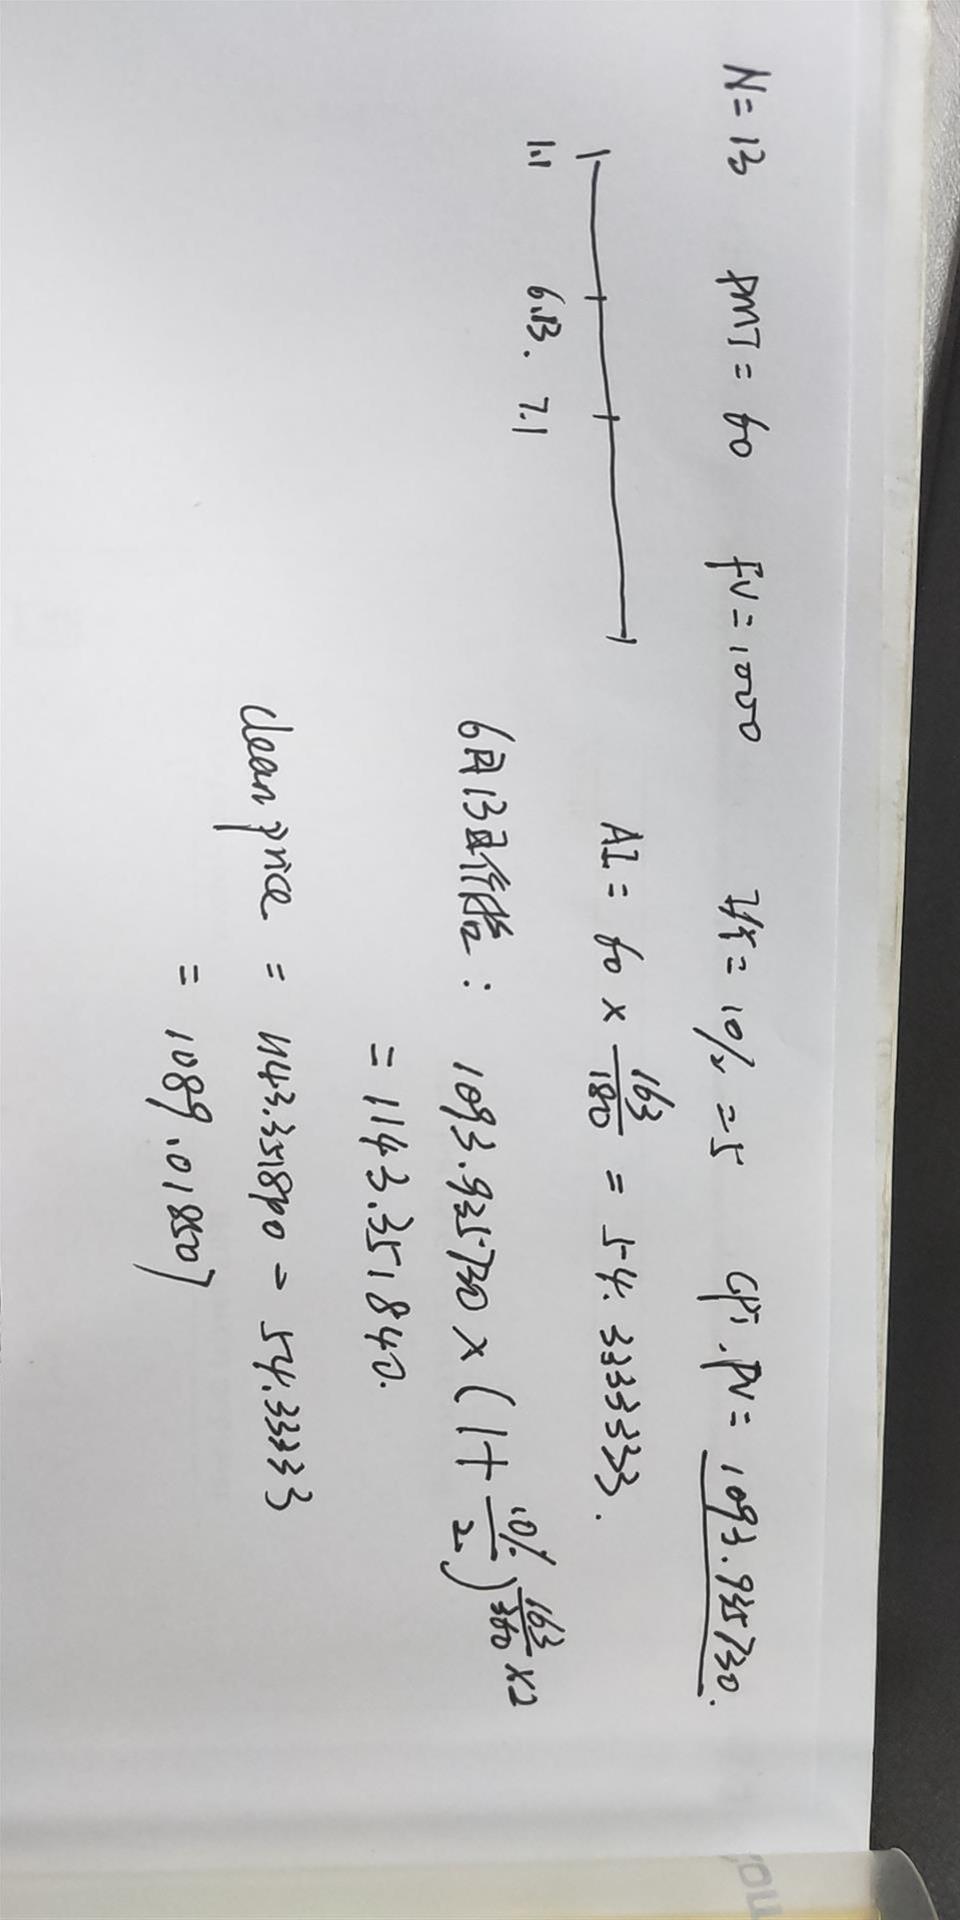 N=13 PMT=60 FV=1000 I/Y=10/2=5 CPT.PV=1093.935730.
AI=60×163/180=54.3333333.
1.1 6.13. 7.1
6月13日价格: 1093.935730×(1+10%/2)^(163/360×2)
=1143.351840.
clean price = 1143.351840-54.33333
=1089.018507